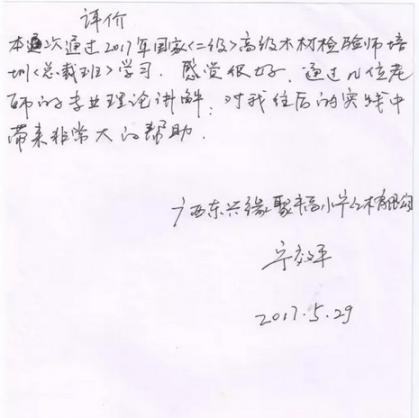 评价
本次通过2017年国家<二级>高级木材检验师培
训<总裁班>学习. 感觉很好. 通过几位老
师的专业理论讲解. 对我往后的实践中
带来非常大的帮助.
广西东兴缘聚丰高木有限公司
2017.5.29